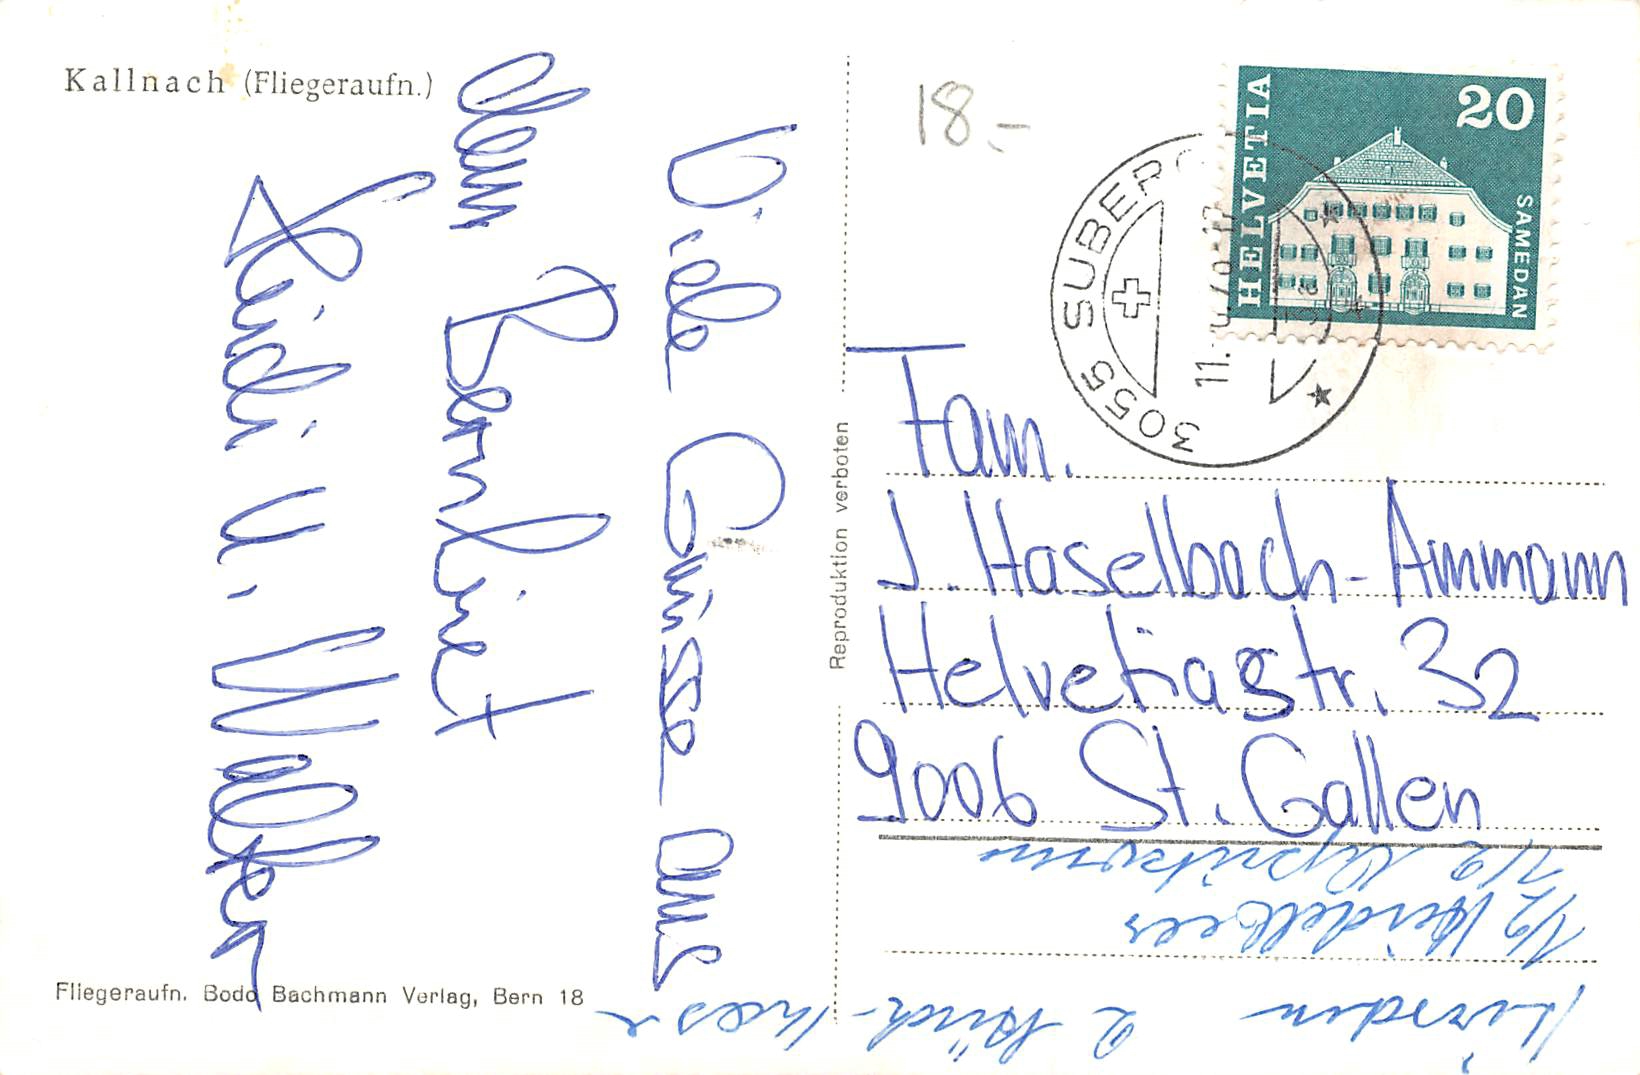 Kallnach (Fliegeraufn.)
Viele Grüsse aus
dem Bernbiet
Heidi u. Walter
Fliegeraufn. Bodo Bachmann Verlag, Bern 18
Reproduktion verboten
18.-
HELVETIA
20
SAMEDAN
3055 SUBERG
11.
Fam.
J. Haselbach-Ammann
Helvetiastr. 32
9006 St. Gallen
1/2 Heidelbeer